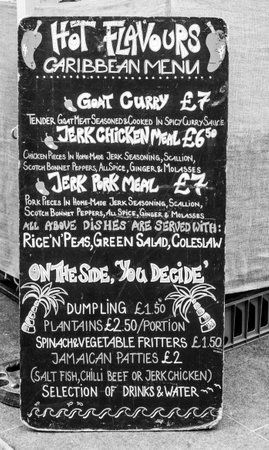 HOT FLAVOURS
CARIBBEAN MENU
GOAT CURRY £7
TENDER GOAT MEAT SEASONED & COOKED IN SPICY CURRY SAUCE
JERK CHICKEN MEAL £6.50
CHICKEN PIECES IN HOME-MADE JERK SEASONING, SCALLION,
SCOTCH BONNET PEPPERS, ALLSPICE, GINGER & MOLASSES
JERK PORK MEAL £7
PORK PIECES IN HOME-MADE JERK SEASONING, SCALLION,
SCOTCH BONNET PEPPERS, ALLSPICE, GINGER & MOLASSES
ALL ABOVE DISHES ARE SERVED WITH:
RICE'N'PEAS, GREEN SALAD, COLESLAW
ON THE SIDE, 'YOU DECIDE'
DUMPLING £1.50
PLANTAINS £2.50/PORTION
SPINACH & VEGETABLE FRITTERS £1.50
JAMAICAN PATTIES £2
(SALT FISH, CHILLI BEEF OR JERK CHICKEN)
SELECTION OF DRINKS & WATER